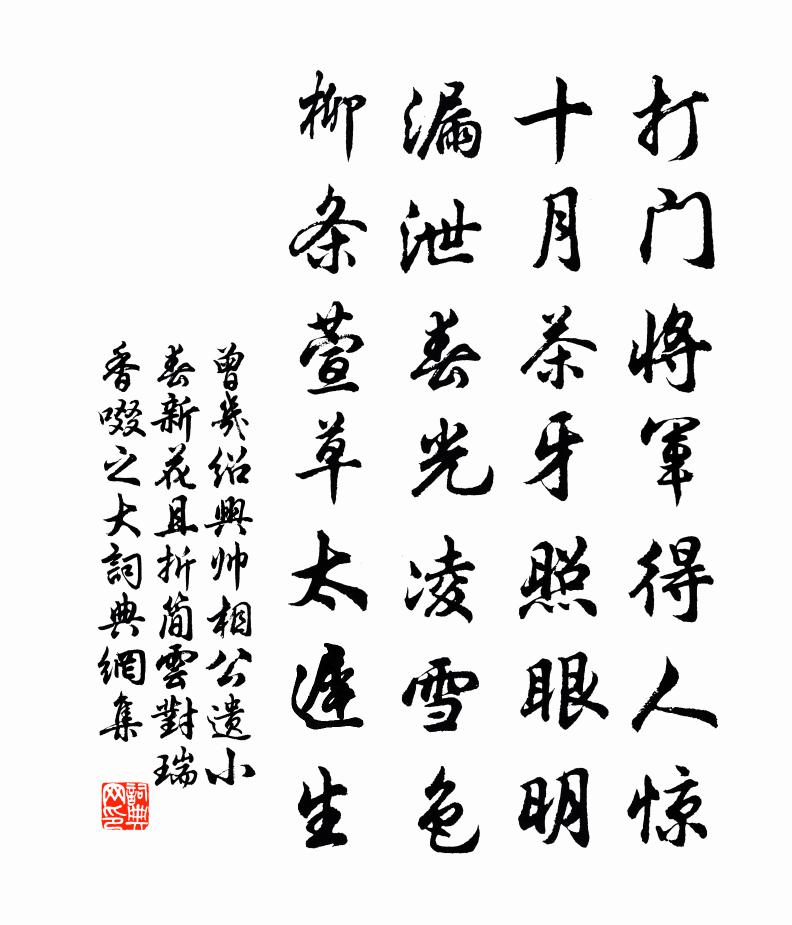 打门将军得人惊
十月茶牙照眼明
漏泄春光凌雪色
柳条萱草太遅生
曾幾绍興帅相公遗小
春新花且折简雲對瑞
香啜之大詞典網集
詞典网印